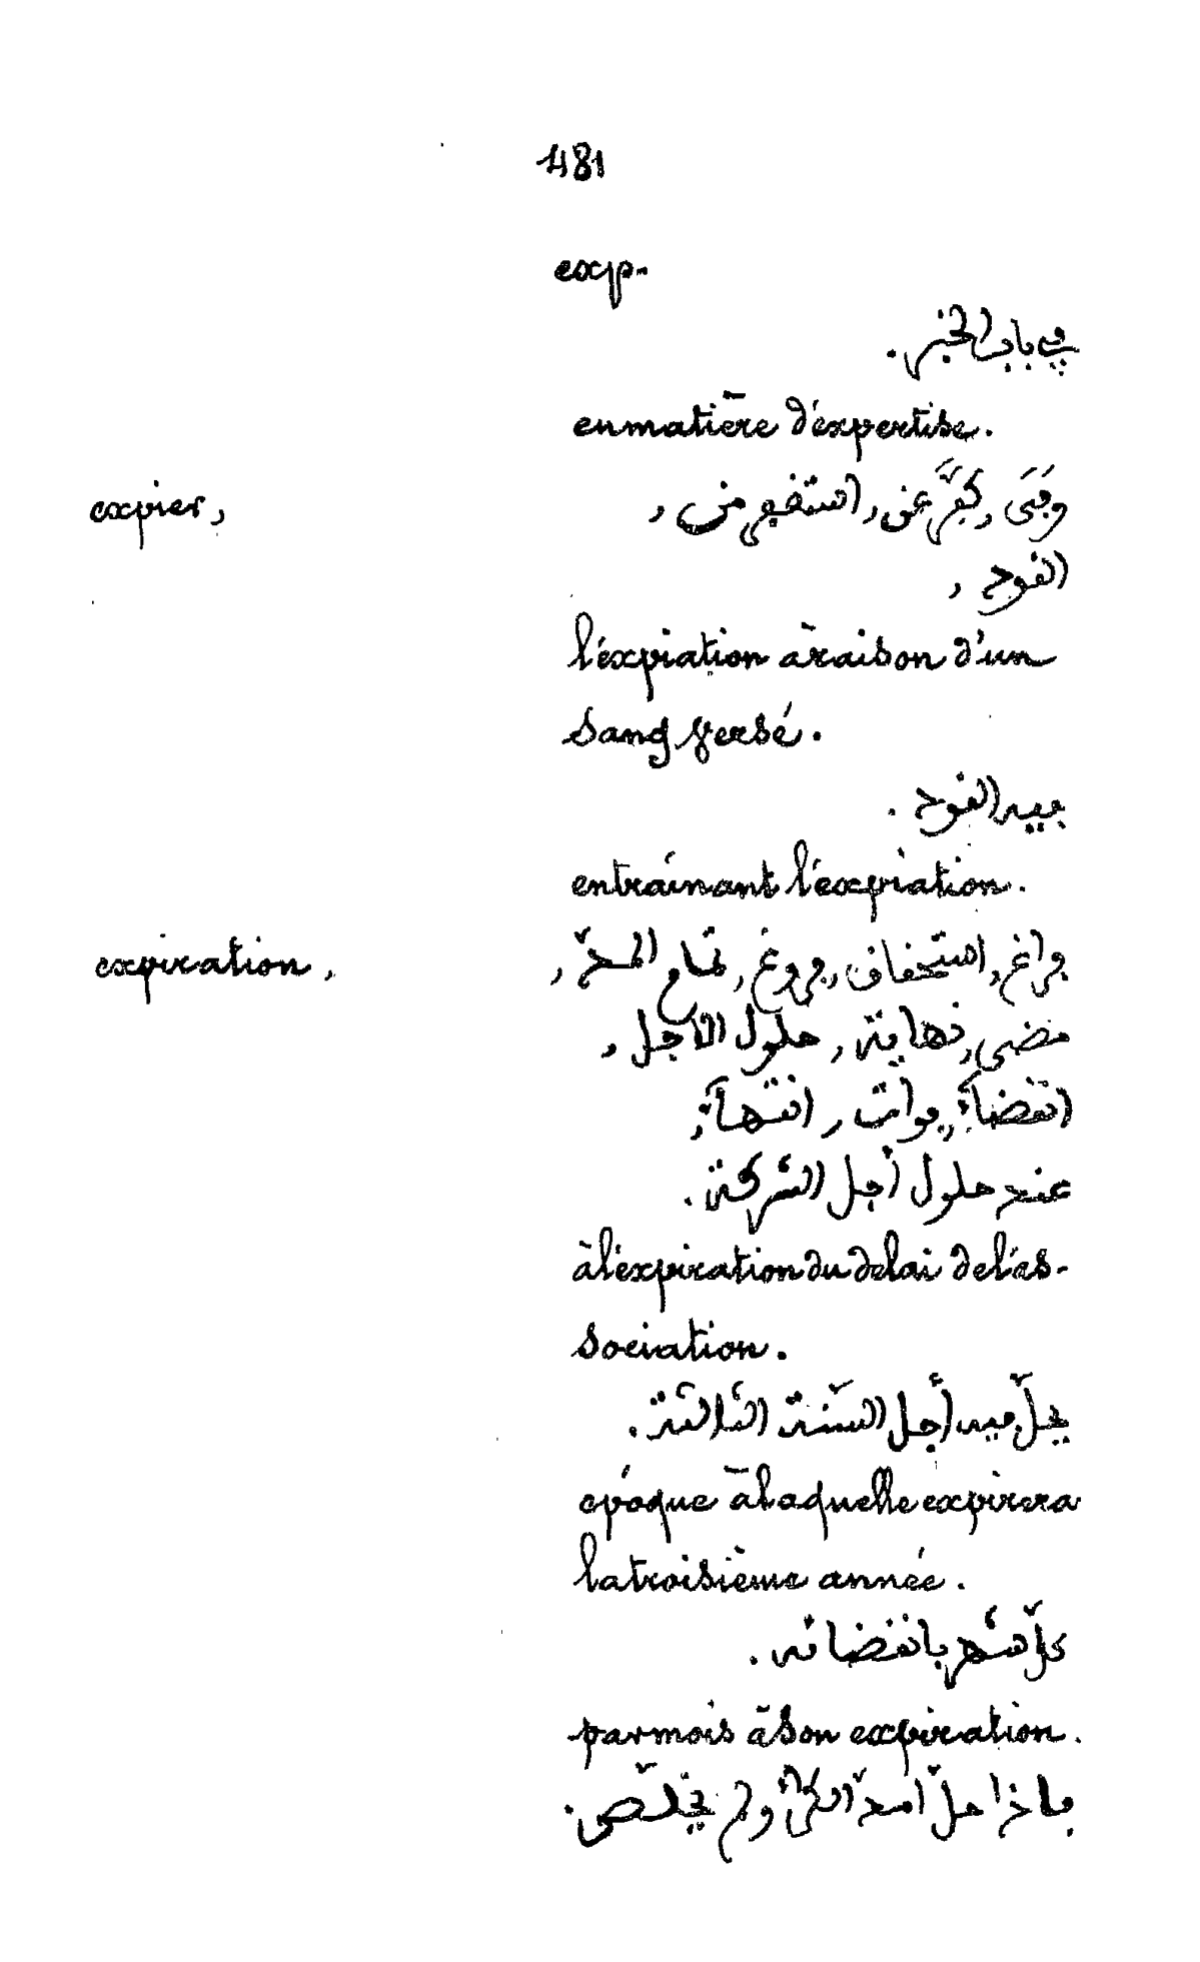 481
exp.
في باب الخبر.
en matière d'expertise.
expier, وفى, كفّر عن, استغفر من,
القود,
l'expiation à raison d'un
sang versé.
فيه القود.
entraînant l'expiation.
expiration, فراغ, استحقاق, فروغ, تمام المدّ,
مضي, نهاية, حلول الأجل,
انقضاء, فوات, انتهاء,
عند حلول أجل الشركة.
à l'expiration du délai de l'as-
sociation.
يحلّ فيه أجل السّنة الثالثة.
époque à laquelle expirera
la troisième année.
كلّ شهر بانقضائه.
par mois à son expiration.
فإذا حلّ أمد الكراء ولم يخلّص.